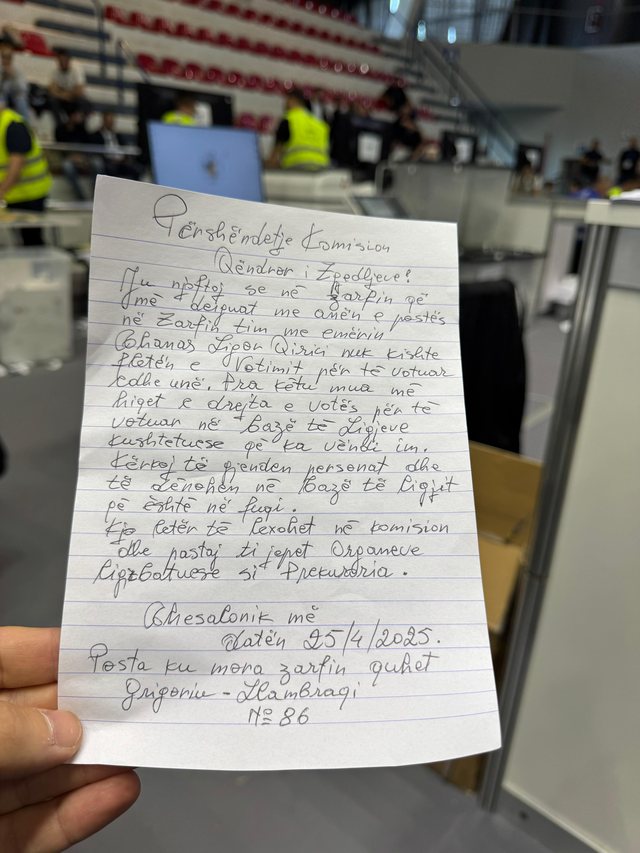 Përshëndetje Komision
Qëndror i Zgedhjeve!
Ju njoftoj se në Zarfin që
më dërguat me anën e postës
në Zarfin tim me emërin
Thanas Ligor Qirici nuk kishte
fletën e Votimit për të votuar
edhe unë. Pra këtu mua më
hiqet e drejta e votës për të
votuar në bazë të Ligjeve
kushtetuese që ka vëndi im.
Kërkoj të gjenden personat dhe
të dënohen në bazë të ligjit
që është në fuqi.
Kjo letër të lexohet në komision
dhe pastaj ti jepet Organeve
ligjzbatuese si Prekuroria.
Thesalonik më
datën 25/4/2025.
Posta ku mora zarfin quhet
Grigoriu - Llambraqi
№ 86